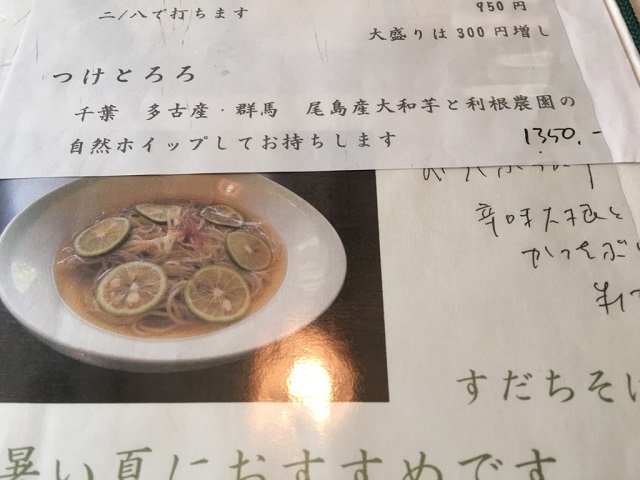 二/八で打ちます
950円
大盛りは300円増し
つけとろろ
千葉 多古産・群馬 尾島産大和芋と利根農園の
自然ホイップしてお持ちします
1350.-
辛味大根と
かつをぶし
すだちそば
暑い夏におすすめです